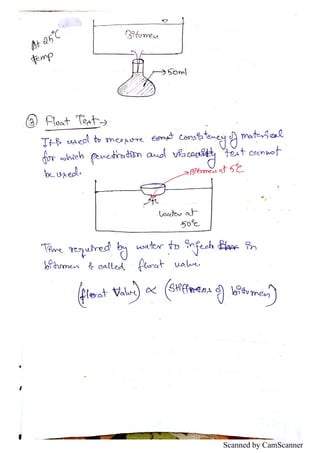 At 25°C
temp
Bitumen
50ml
③ Float Test →
It is used to measure consistency of material
for which penetration and viscosity test cannot
be used.
Bitumen at 5°C
water at
50°C
Time required by water to in
bitumen is called float value
(float Value) ∝ (Stiffness of bitumen)
Scanned by CamScanner